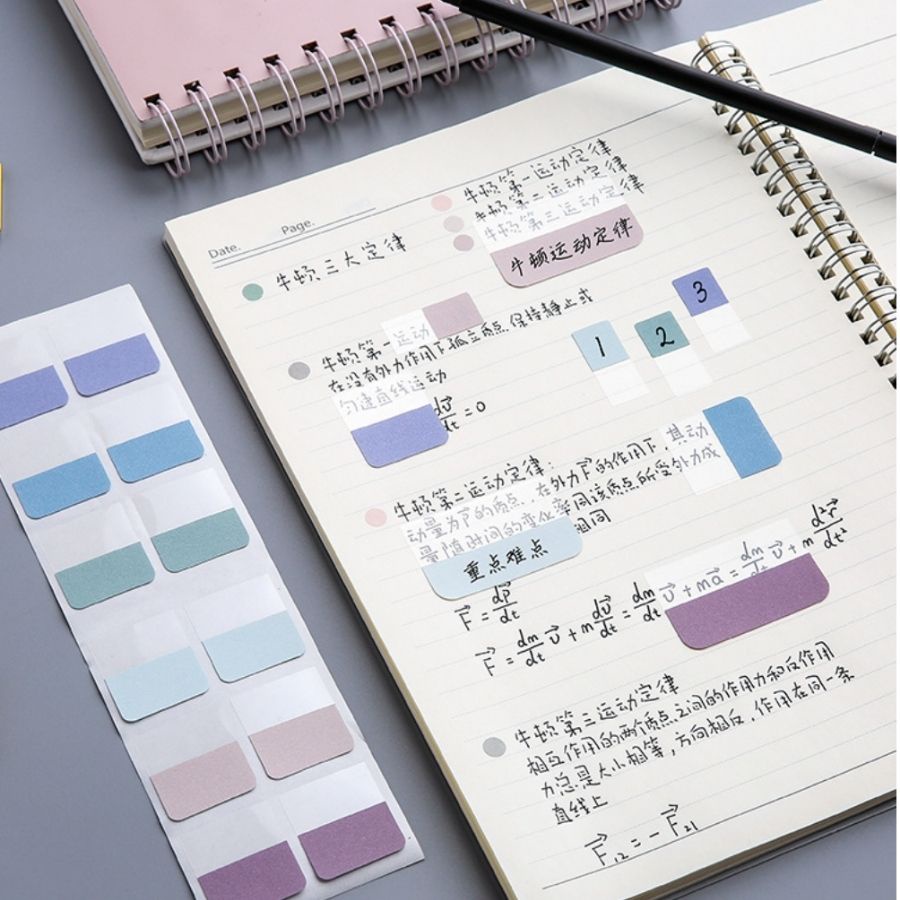 Date.
Page.
牛顿三大定律
牛顿第一运动定律
牛顿第二运动定律
牛顿第三运动定律
牛顿运动定律
1
2
3
牛顿第一运动
在没有外力作用下孤立质点,保持静止或
匀速直线运动
dv⃗/dt=0
牛顿第二运动定律:
动量为P⃗的质点,在外力F⃗的作用下,其动
量随时间的变化率同该质点所受外力成
相同
重点难点
F⃗=dP⃗/dt
F⃗=dm/dt v⃗+m dv⃗/dt=dm/dt v⃗+ma⃗=dm/dt v⃗+m d²r⃗/dt²
牛顿第三运动定律
相互作用的两个质点之间的作用力和反作用
力总是大小相等,方向相反,作用在同一条
直线上
F⃗₁₂=-F⃗₂₁